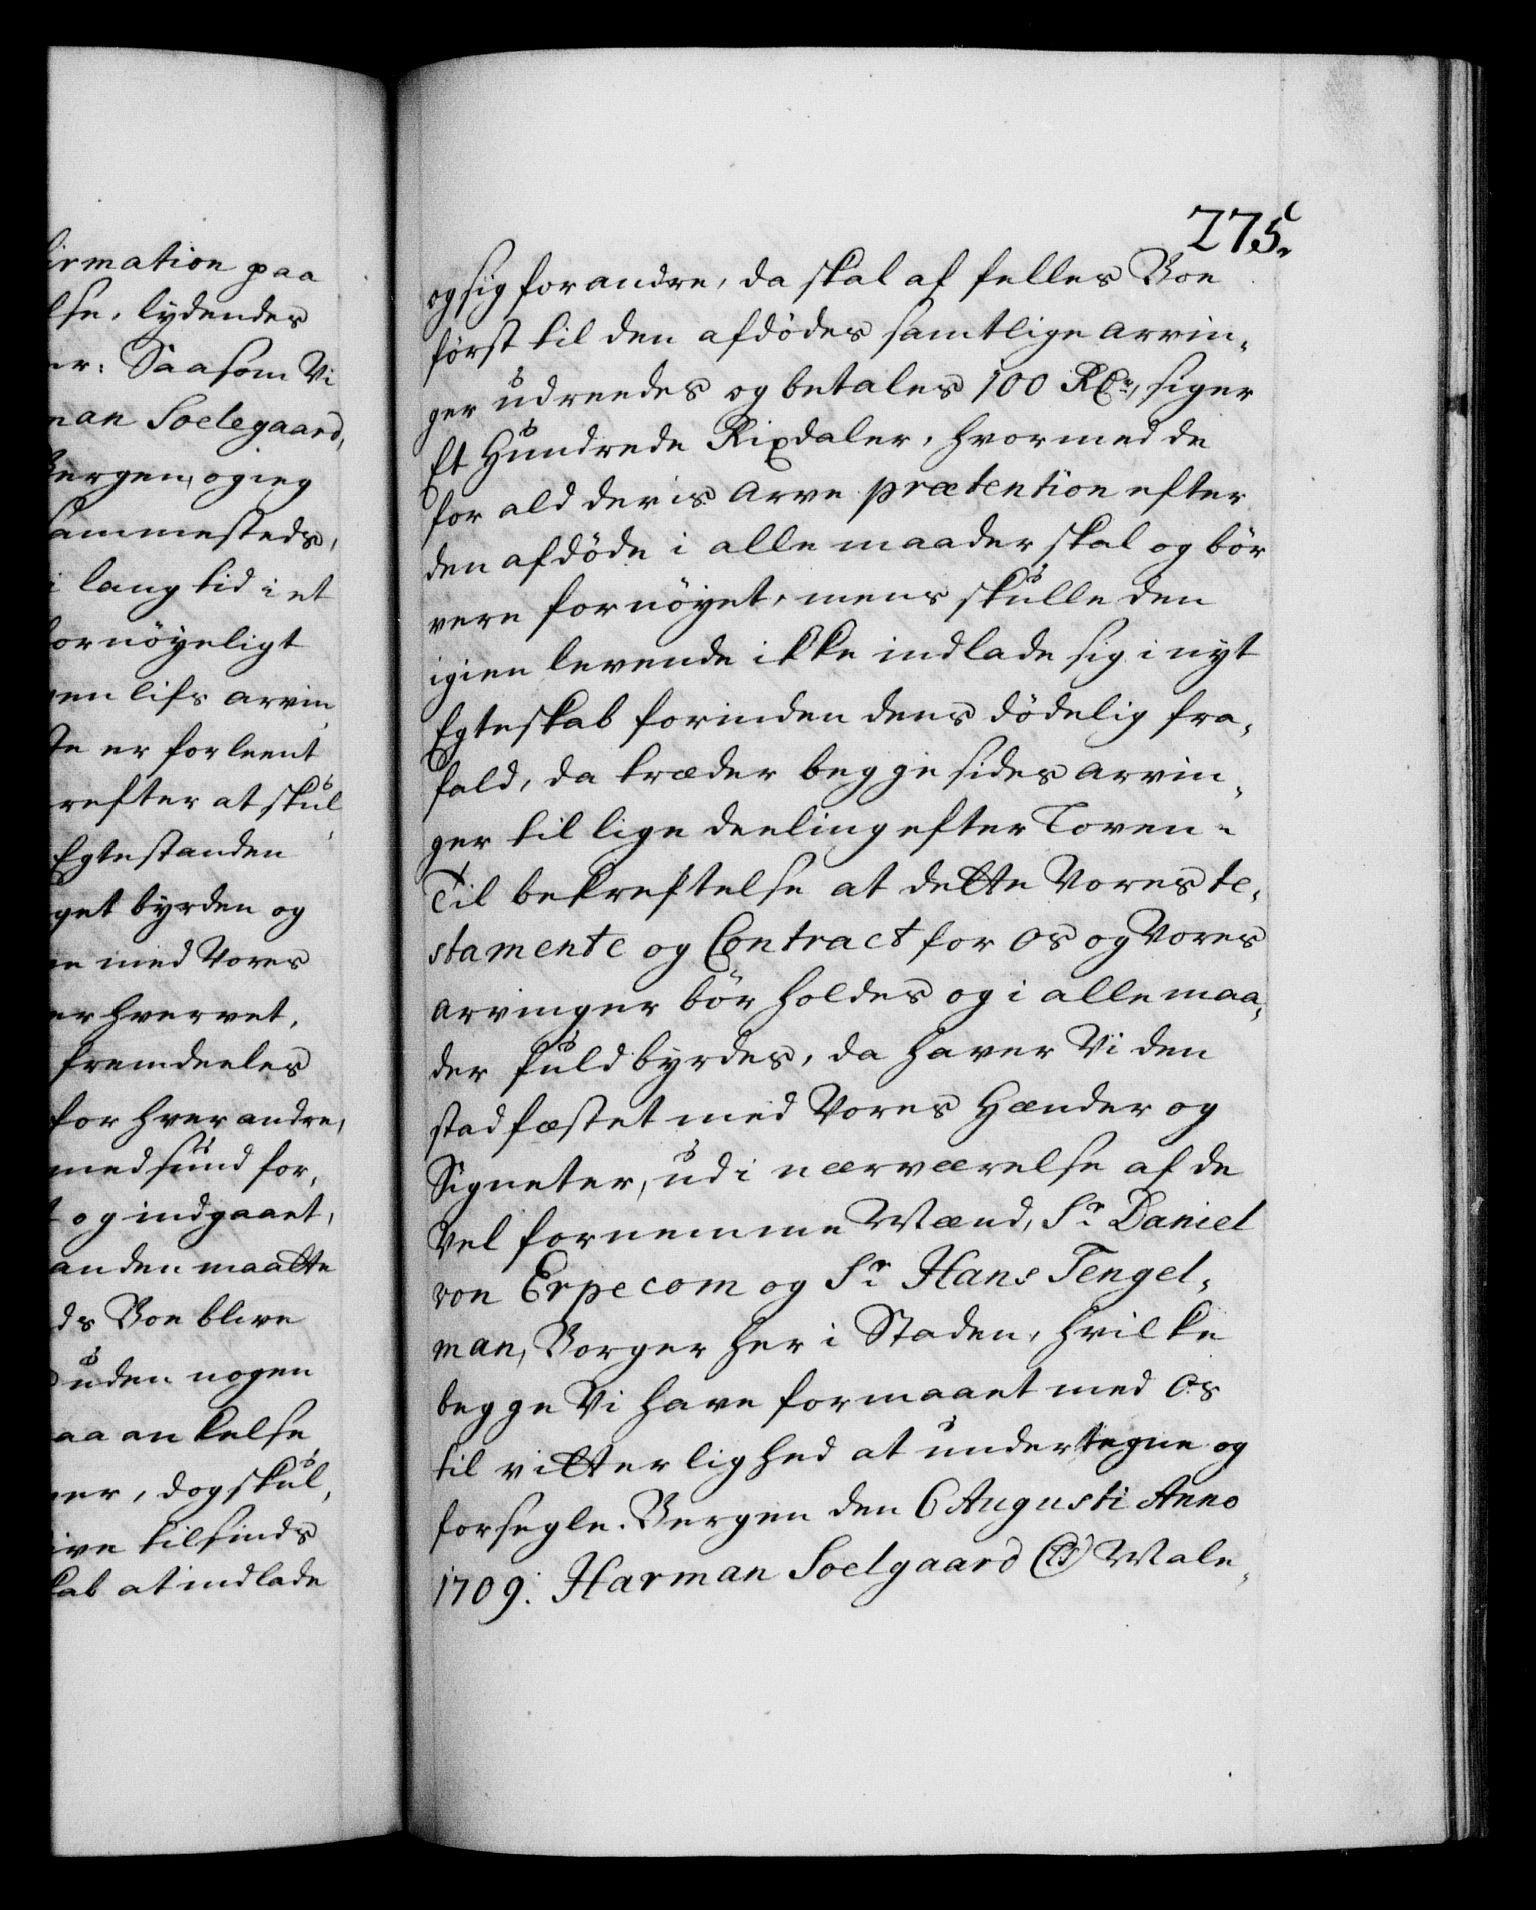 irmation paa
lse, lydendes
er: Saasom Vi
man Soelegaard,
Bergen, og ieg
sammesteds,
i lang tid i et
fornöyeligt
gen lifs arvin
te er forleent
refter at skul
Egtestanden
get byrden og
ne med Vores
erhvervet,
fremdeeles
for hverandre,
med sund for,
t og indgaaet,
anden maatte
ds Boe blive
uden nogen
aaankelse
ner, dog skul,
ive tilsinds
kab at indlade
275.
og sig forandre, da skal af felles Boe
först til den afdödes samtlige arvin,
ger udreedes og betales 100 Rdr, siger
Et Hundrede Rixdaler, hvormed de
for ald deris Arve prætention efter
den afdöde i alle maader skal og bör
vere fornöyet, mens skulle den
igien levende ikke indlade sig i nyt
Egteskab forinden dens dödelig fra,
fald, da træder begge sides arvin,
ger til lige deeling efter Loven.
Til bekreftelse at dette Vores te,
stamente og Contract for Os og Vores
arvinger bör holdes og i alle maa,
der fuldbyrdes, da haver Vi den
stadfæstet med Vores Hænder og
Signeter, udi nærværelse af de
Vel fornemme Mænd, Sr Daniel
von Erpecom og Sr Hans Tengel,
man, Borger her i Staden, hvilke
begge Vi have formaaet med Os
til vitterlighed at undertegne og
forsegle. Bergen den 6 Augusti Anno
1709. Harman Soelgaard (LS) Wale,